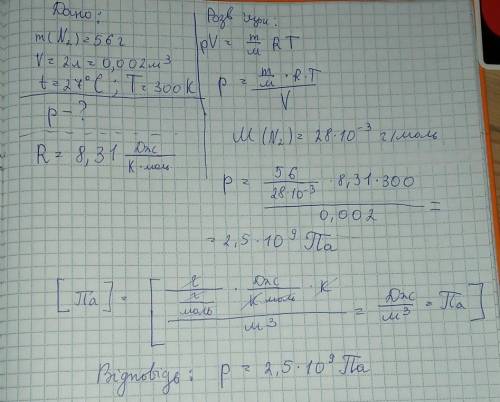 Дано:
m(N₂) = 56 г
V = 2л = 0,002 м³
t = 27°C ; T = 300 K
p - ?
R = 8,31 Дж / К·моль
Розв'язок:
pV = m/M RT
p = (m/M · R · T) / V
M (N₂) = 28·10⁻³ г/моль
p = (56 / 28·10⁻³ · 8,31 · 300) / 0,002 =
= 2,5·10⁹ Па
[Па] = [(г / (г/моль) · Дж / К·моль · К) / м³ = Дж/м³ = Па]
Відповідь: p = 2,5·10⁹ Па